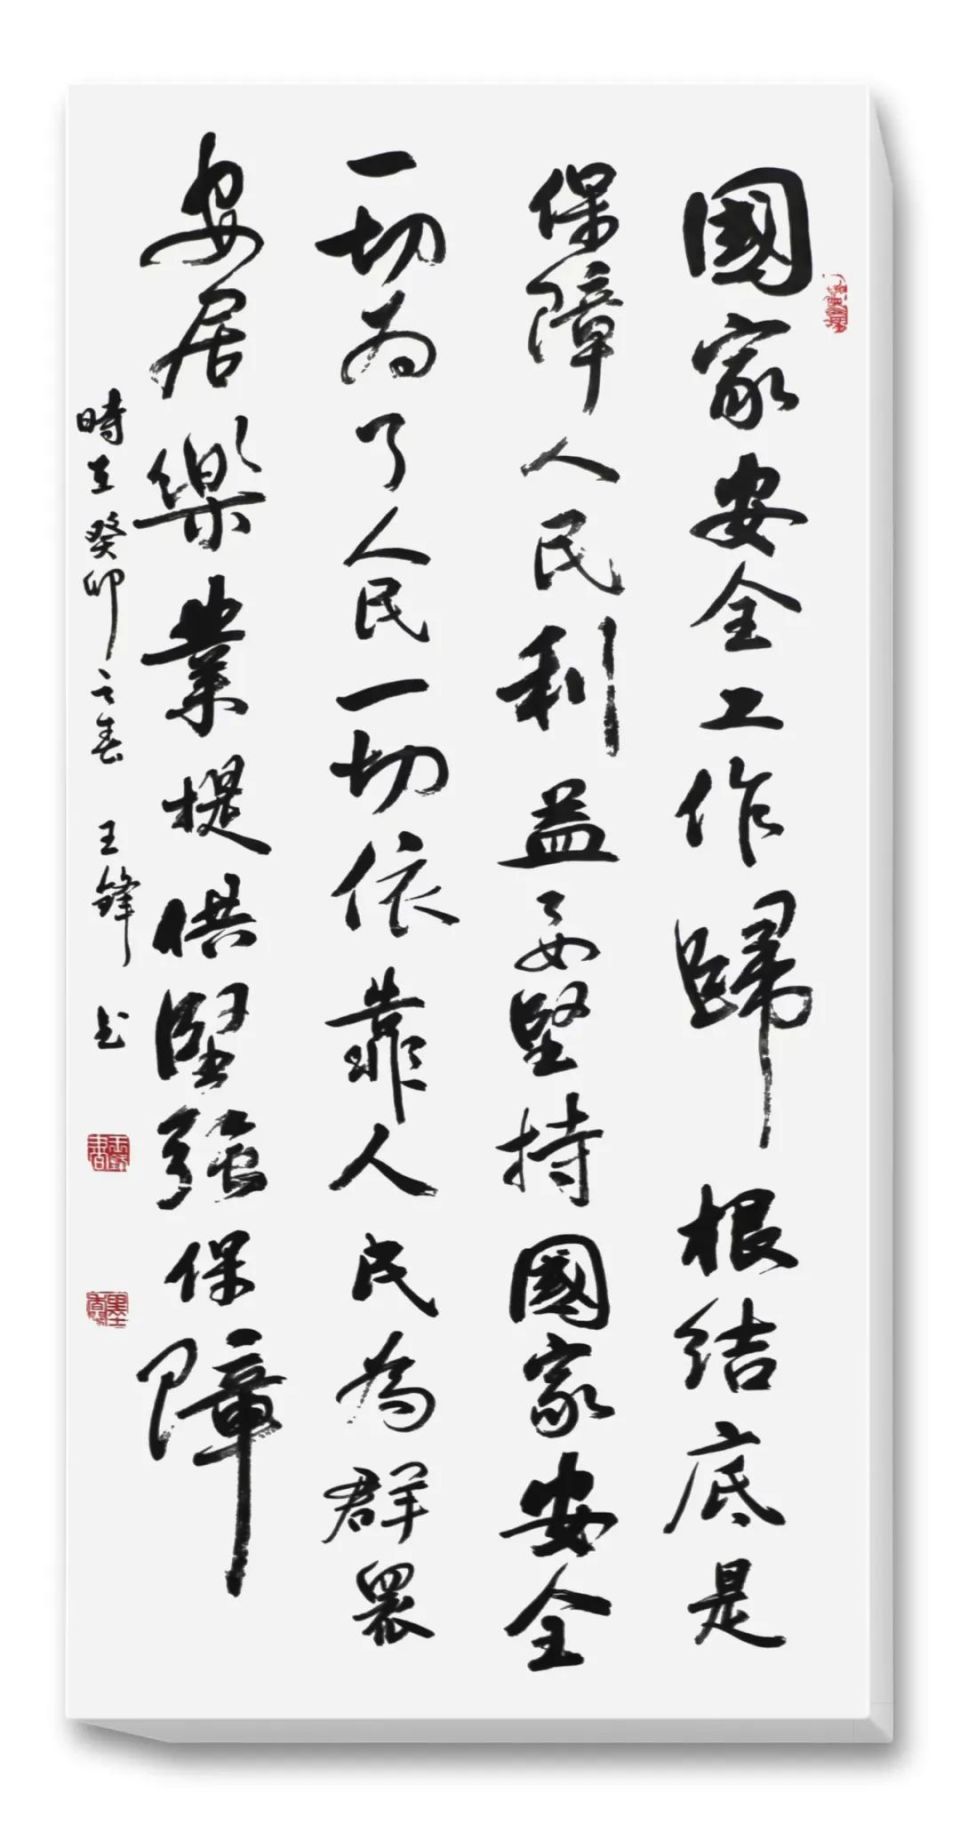 國家安全工作歸根结底是
保障人民利益要堅持國家安全
一切为了人民一切依靠人民為群眾
安居樂業提供堅強保障
時在癸卯之春 王鋒书